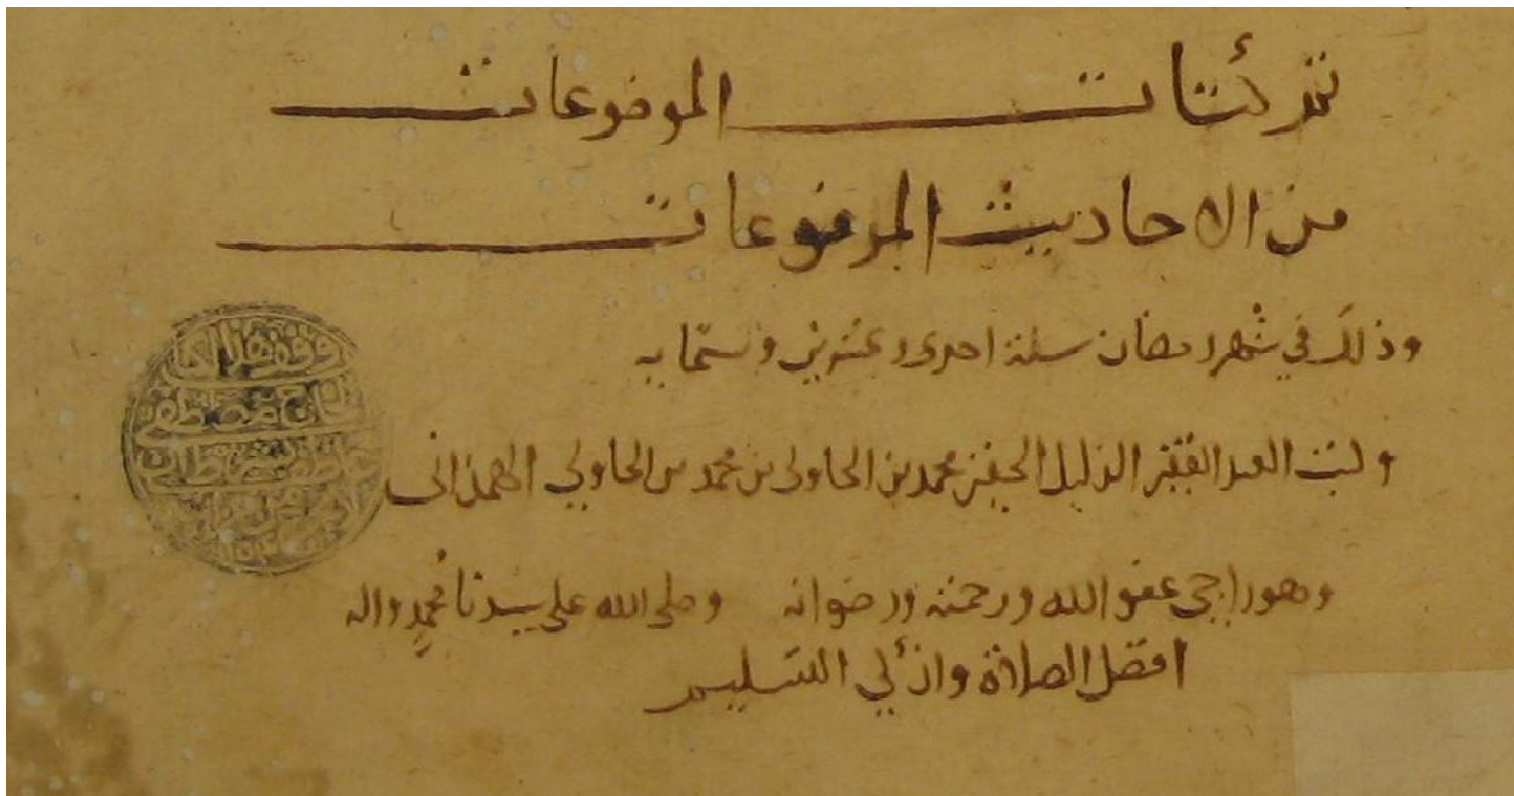 تم كتاب الموضوعات
من الاحاديث المرفوعات
وذلك في شهر رمضان سنة احدى وعشرين وستمايه
وكتب العبد الفقير الذليل الحقير محمد بن الحاولي بن محمد بن الحاولي الهمذانى
وهو راجي عفو الله ورحمته ورضوانه وصلى الله على سيدنا محمد واله
افضل الصلاة وازكى التسليم
وقف هذا
الحاج مصطفى